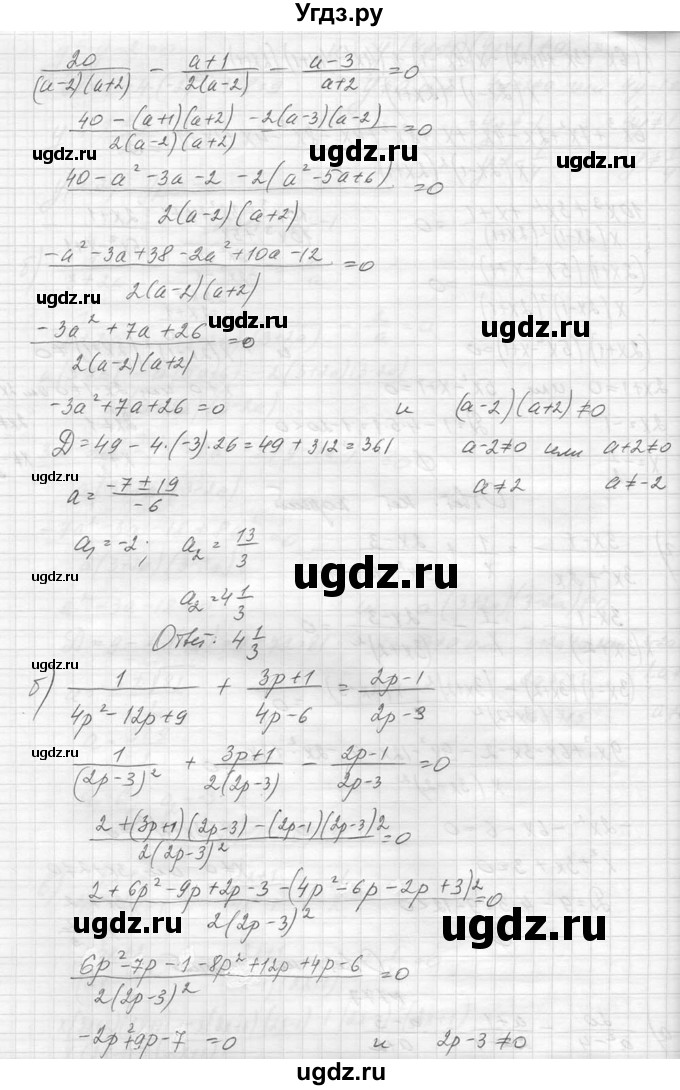 Угдз.ру
20/((a-2)(a+2)) - (a+1)/(2(a-2)) - (a-3)/(a+2) = 0
(40 - (a+1)(a+2) - 2(a-3)(a-2))/(2(a-2)(a+2)) = 0
ugdz.ru ugdz.ru ugdz.ru
(40 - a² - 3a - 2 - 2(a² - 5a + 6))/(2(a-2)(a+2)) = 0
ugdz.ru
(-a² - 3a + 38 - 2a² + 10a - 12)/(2(a-2)(a+2)) = 0
ugdz.ru ugdz.ru ugdz.ru
(-3a² + 7a + 26)/(2(a-2)(a+2)) = 0
ugdz.ru
-3a² + 7a + 26 = 0 и (a-2)(a+2) ≠ 0
Д = 49 - 4·(-3)·26 = 49 + 312 = 361 a-2≠0 или a+2≠0
ugdz.ru
a = (-7 ± 19)/(-6) a≠2 a≠-2
a₁ = -2; a₂ = 13/3
ugdz.ru ugdz.ru
a₂ = 4 1/3
Ответ: 4 1/3
ugdz.ru
б) 1/(4p² - 12p + 9) + (3p+1)/(4p-6) = (2p-1)/(2p-3)
ugdz.ru
1/(2p-3)² + (3p+1)/(2(2p-3)) - (2p-1)/(2p-3) = 0
ugdz.ru
(2 + (3p+1)(2p-3) - (2p-1)(2p-3)2)/(2(2p-3)²) = 0
ugdz.ru
(2 + 6p² - 9p + 2p - 3 - (4p² - 6p - 2p + 3)2)/(2(2p-3)²) = 0
ugdz.ru ugdz.ru ugdz.ru
(6p² - 7p - 1 - 8p² + 12p + 4p - 6)/(2(2p-3)²) = 0
-2p² + 9p - 7 = 0 и 2p-3 ≠ 0
ugdz.ru